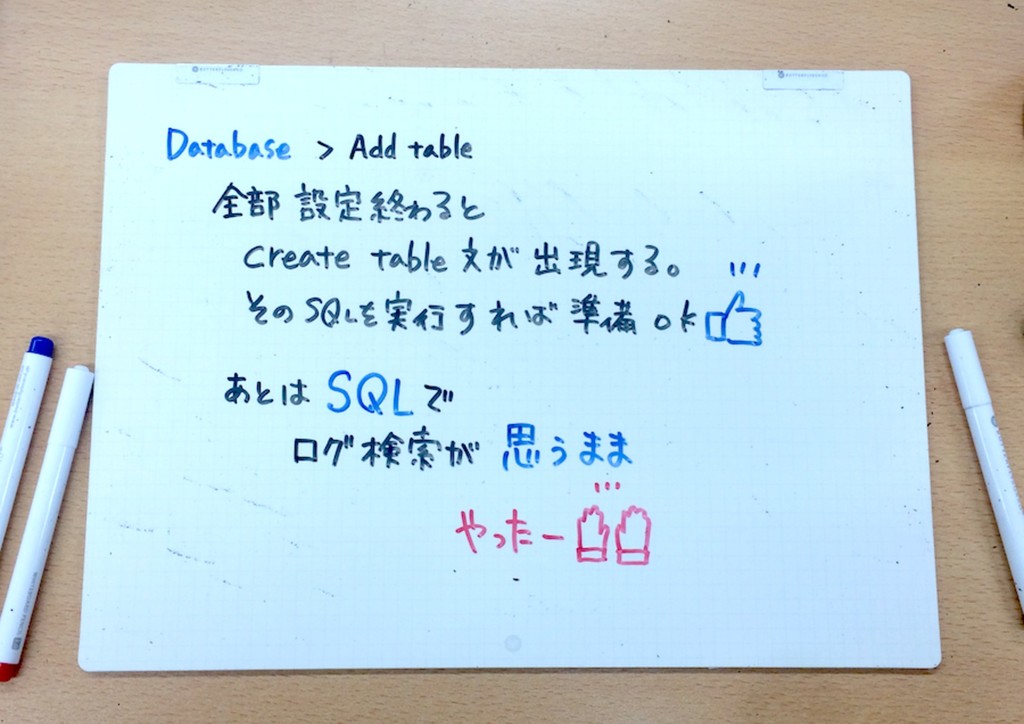 Database > Add table
全部 設定終わると
create table 文が 出現する。
そのSQLを実行すれば 準備 ok
あとは SQLで
ログ検索が 思うまま
やったー